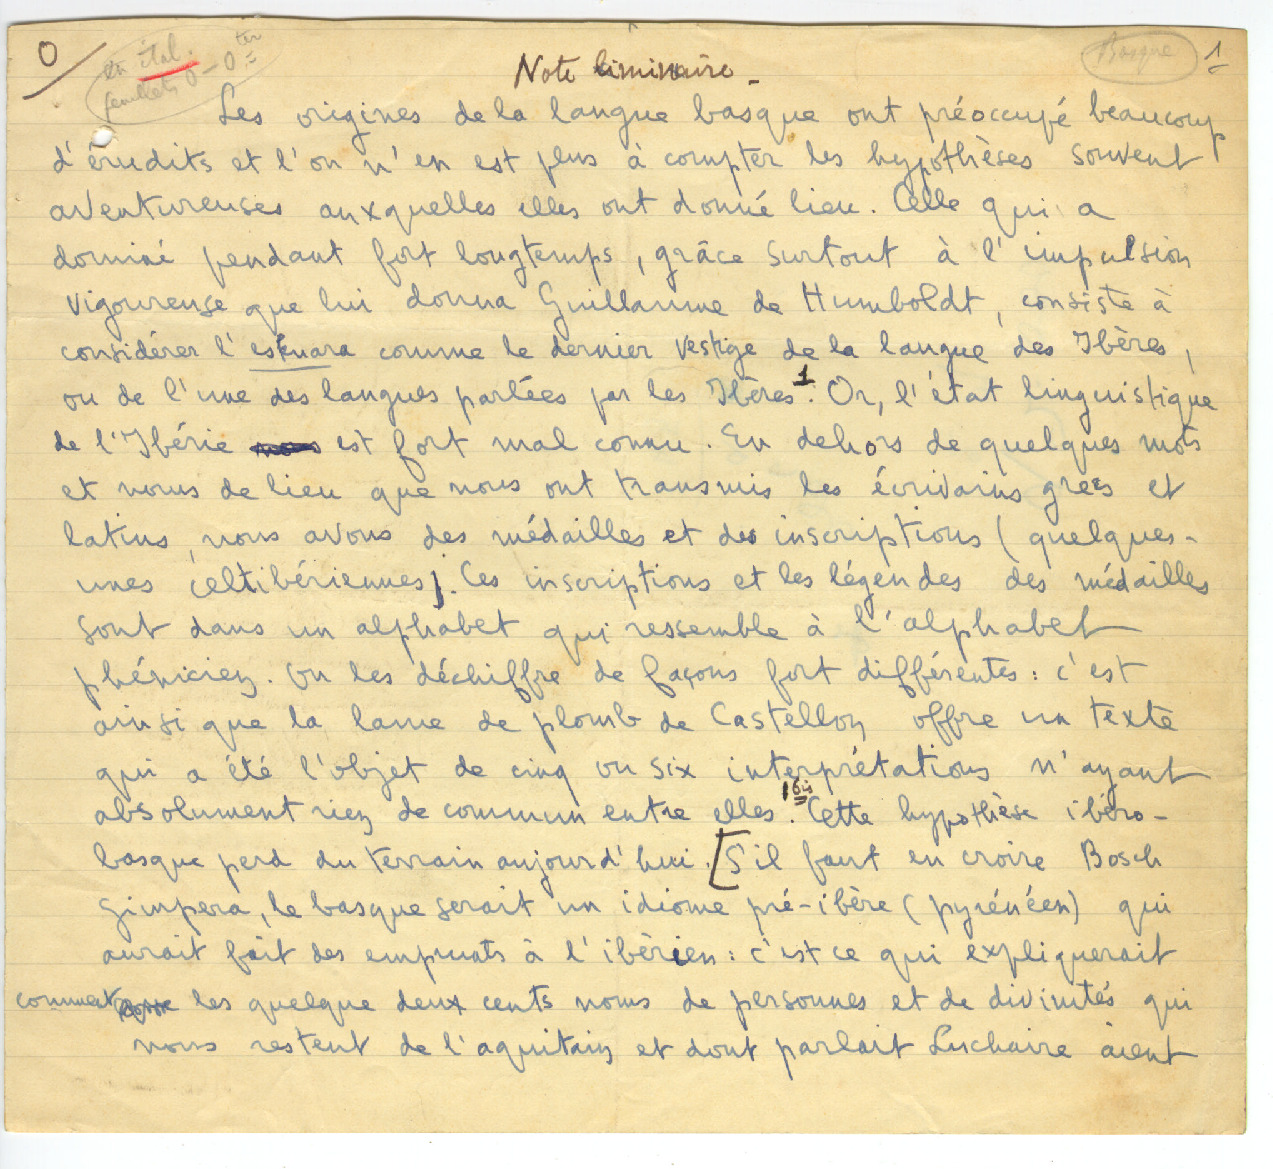 0
en ital.
feuillets 0 - 0 ter
Basque
1
Note liminaire -
Les origines de la langue basque ont préoccupé beaucoup
d'érudits et l'on n'en est plus à compter les hypothèses souvent
aventureuses auxquelles elles ont donné lieu. Celle qui a
dominé pendant fort longtemps, grâce surtout à l'impulsion
vigoureuse que lui donna Guillaume de Humboldt, consiste à
considérer l'eskuara comme le dernier vestige de la langue des Ibères,
ou de l'une des langues parlées par les Ibères 1. Or, l'état linguistique
de l'Ibérie est fort mal connu. En dehors de quelques mots
et noms de lieu que nous ont transmis les écrivains grecs et
latins, nous avons des médailles et des inscriptions (quelques-
unes celtibériennes). Ces inscriptions et les légendes des médailles
sont dans un alphabet qui ressemble à l'alphabet
phénicien. On les déchiffre de façons fort différentes : c'est
ainsi que la lame de plomb de Castellon offre un texte
qui a été l'objet de cinq ou six interprétations n'ayant
absolument rien de commun entre elles 1 bis. Cette hypothèse ibéro-
basque perd du terrain aujourd'hui. [S'il faut en croire Bosch
Gimpera, le basque serait un idiome pré-ibère (pyrénéen) qui
aurait fait des emprunts à l'ibérien : c'est ce qui expliquerait
comment les quelque deux cents noms de personnes et de divinités qui
nous restent de l'aquitain et dont parlait Luchaire aient